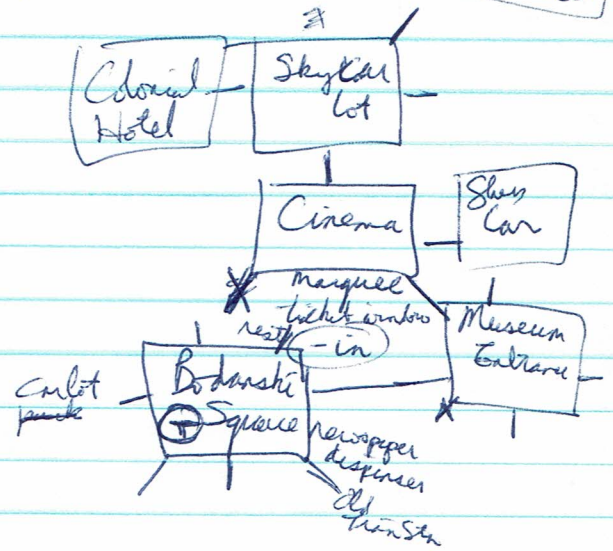 SkyCar
lot
Colonial
Hotel
Cinema
Skycar
marquee
ticket window
rest
-in
Museum
Entrance
Bodanski
Square
T
carlot
park
newspaper
dispenser
old
Tran Stn